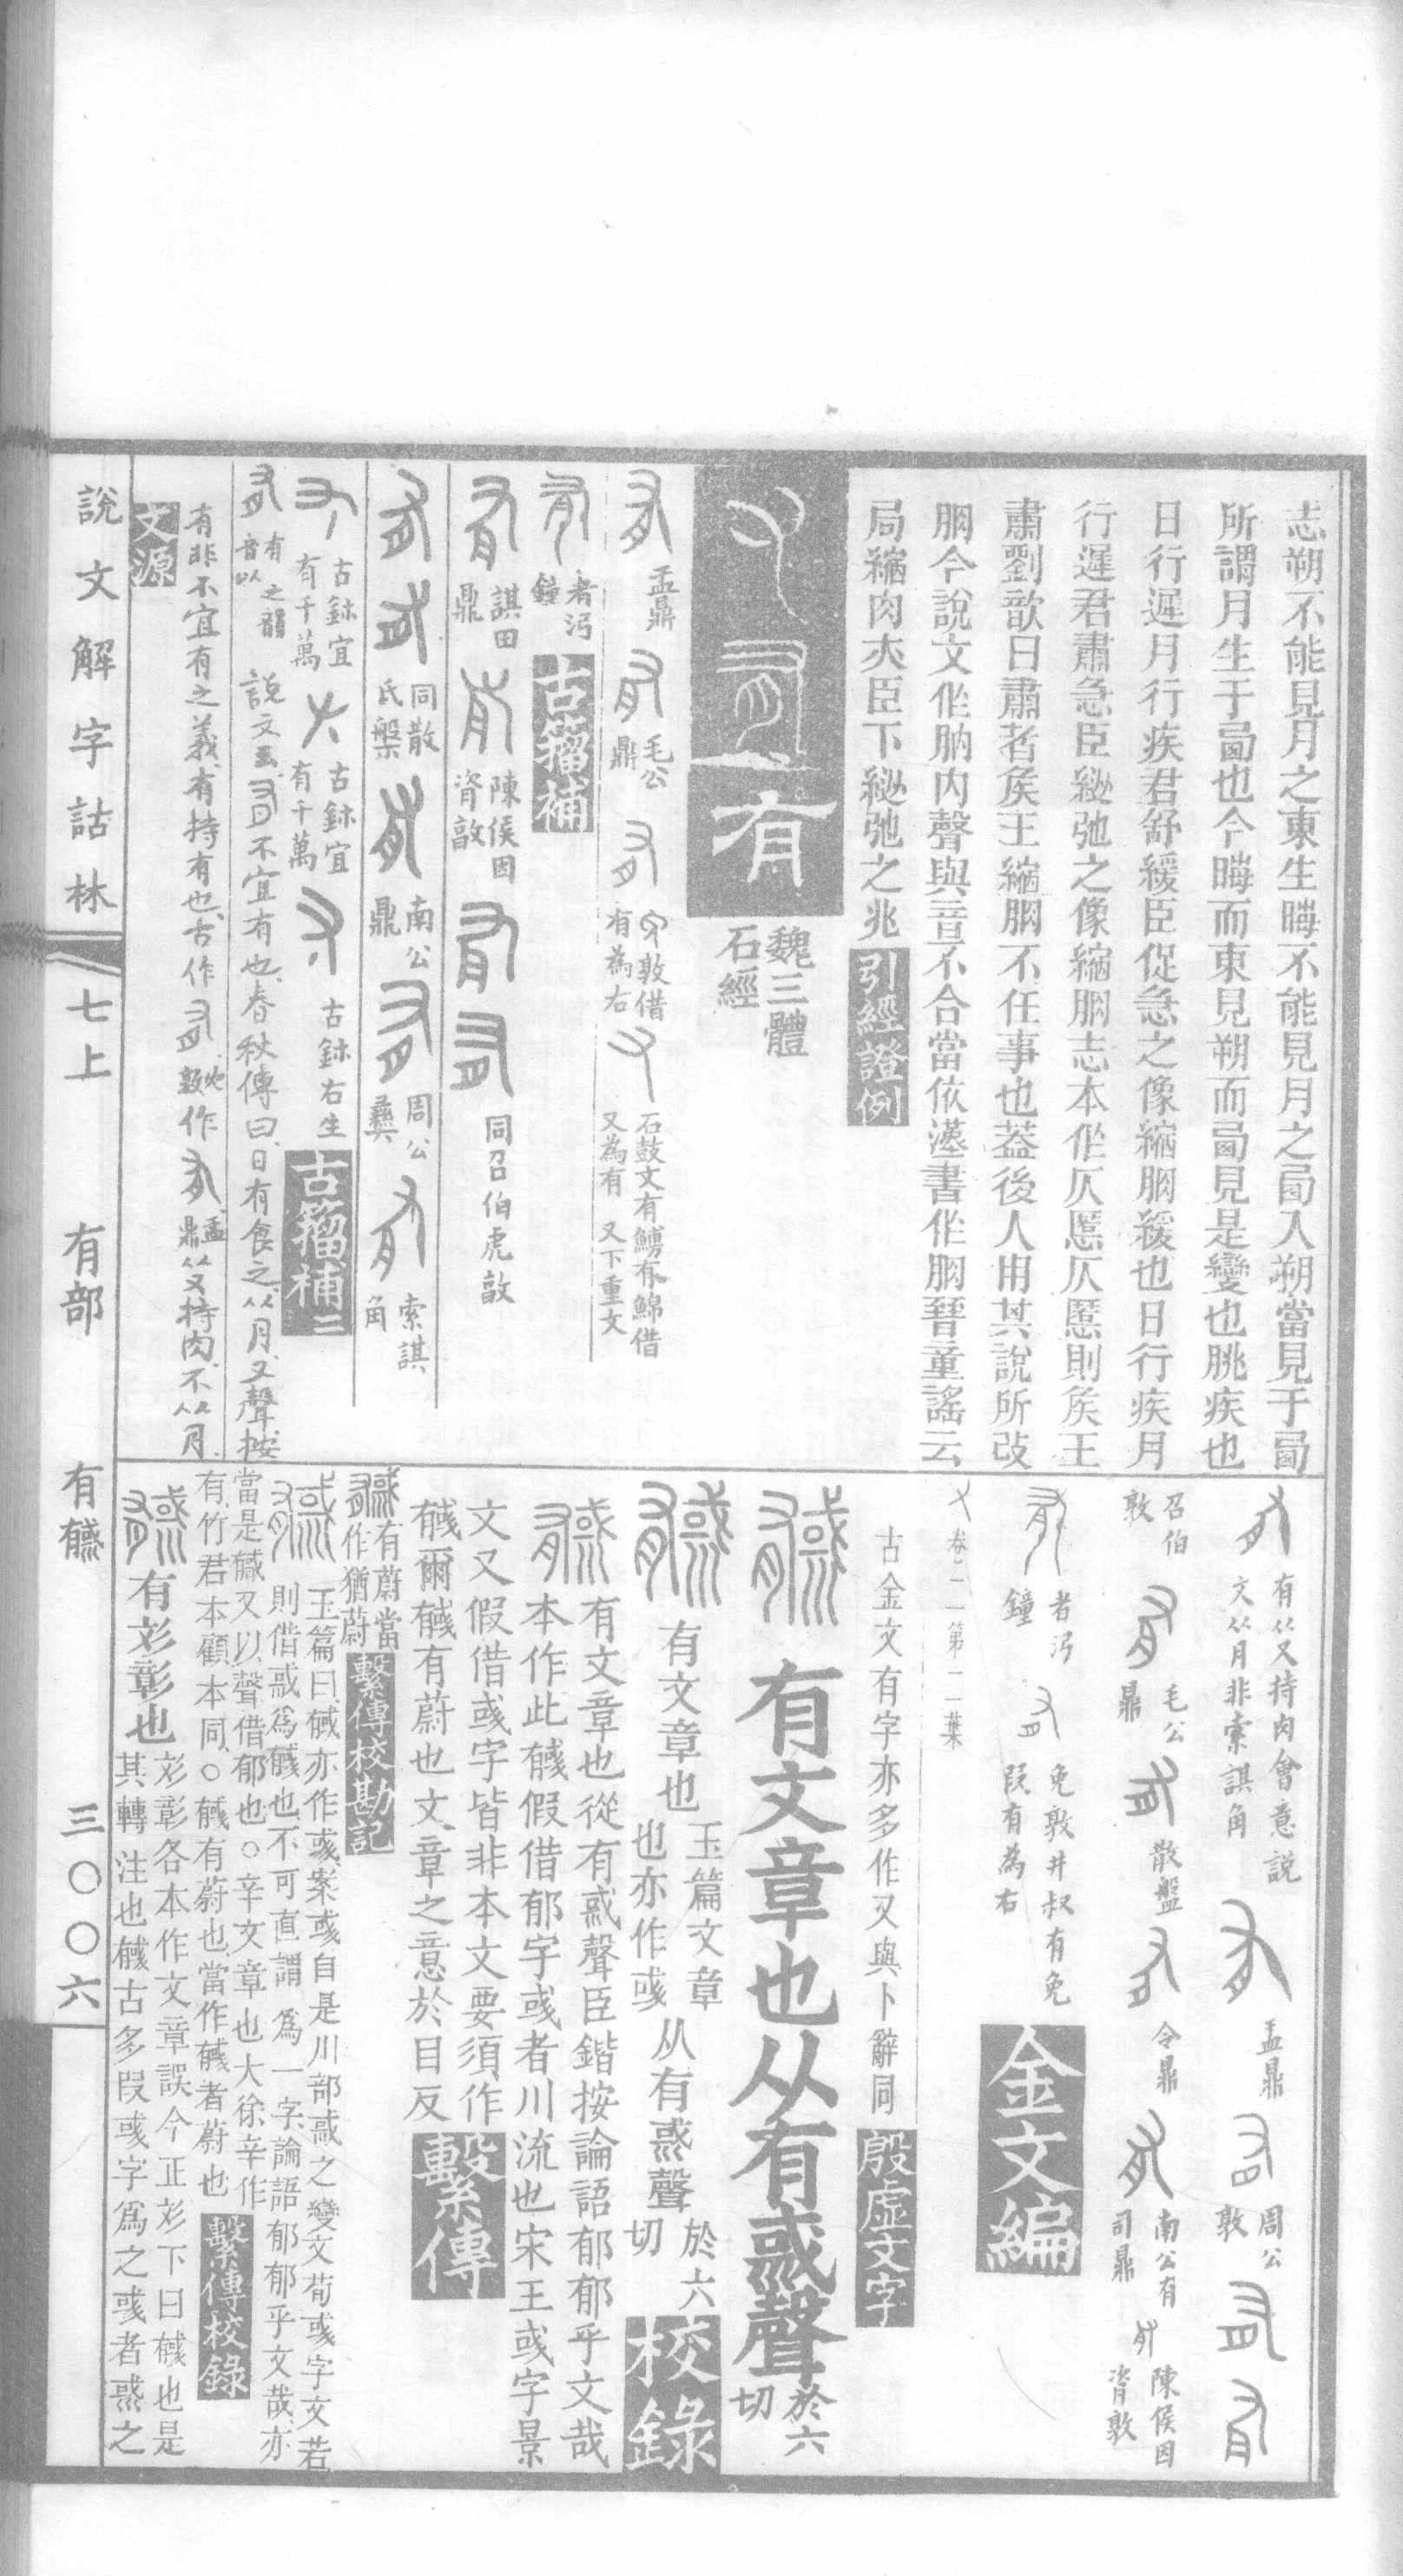 志朔不能見月之東生晦不能見月之㢴入朔當見于㢴
所謂月生于㢴也今晦而東見朔而㢴見是變也朓疾也
日行遲月行疾君舒緩臣促急之像縮朒緩也日行疾月
行遲君肅急臣䋛弛之像縮朒志本作仄慝仄慝則矦王
肅劉歆曰肅者矦王縮朒不任事也蓋後人用其說所改
朒今說文作朒內聲與音不合當依漢書作朒晉童謠云
局縮肉夾臣下䋛弛之兆 引經證例
有 魏三體石經
盂鼎 毛公鼎 敦借有為右 石鼓文有鰟有鯿借又為有 又下重文
者沪鐘 古籀補
諆田鼎 陳侯因資敦 同召伯虎敦
同散氏槃 南公鼎 周公彝 索諆角
古鉥宜有千萬 古鉥宜有千萬 古鉥右生 古籀補二
有之韻音以 說文云不宜有也春秋傳曰日有食之从月又聲按
有非不宜有之義有持有也古作 敦作 盂鼎从又持肉不从月
文源
有从又持肉會意說文从月非索諆角 盂鼎 周公敦
召伯敦 毛公鼎 散盤 令鼎 南公有司鼎 陳侯因資敦
者沪鐘 免敦井叔有免叚有為右 金文編
卷二第二二葉
古金文有字亦多作又與卜辭同 殷虛文字
有文章也从有惑聲於六切
有文章也玉篇文章也亦作彧从有惑聲於六切 校錄
有文章也從有惑聲臣鍇按論語郁郁乎文哉
本作此戫假借郁字彧者川流也宋王彧字景
文又假借彧字皆非本文要須作
戫爾戫有蔚也文章之意於目反 繫傳
有蔚當作猶蔚 繫傳校勘記
玉篇曰戫亦作彧案彧自是川部惑之變文荀彧字文若
則借惑爲戫也不可直謂爲一字論語郁郁乎文哉亦
當是戫又以聲借郁也○辛文章也大徐辛作
有竹君本顧本同○戫有蔚也當作戫者蔚也 繫傳校錄
有彣彰也彣彰各本作文章誤今正彣下曰戫也是
其轉注也戫古多叚彧字爲之彧者惑之
說文解字詁林 七上 有部 有戫 三〇〇六